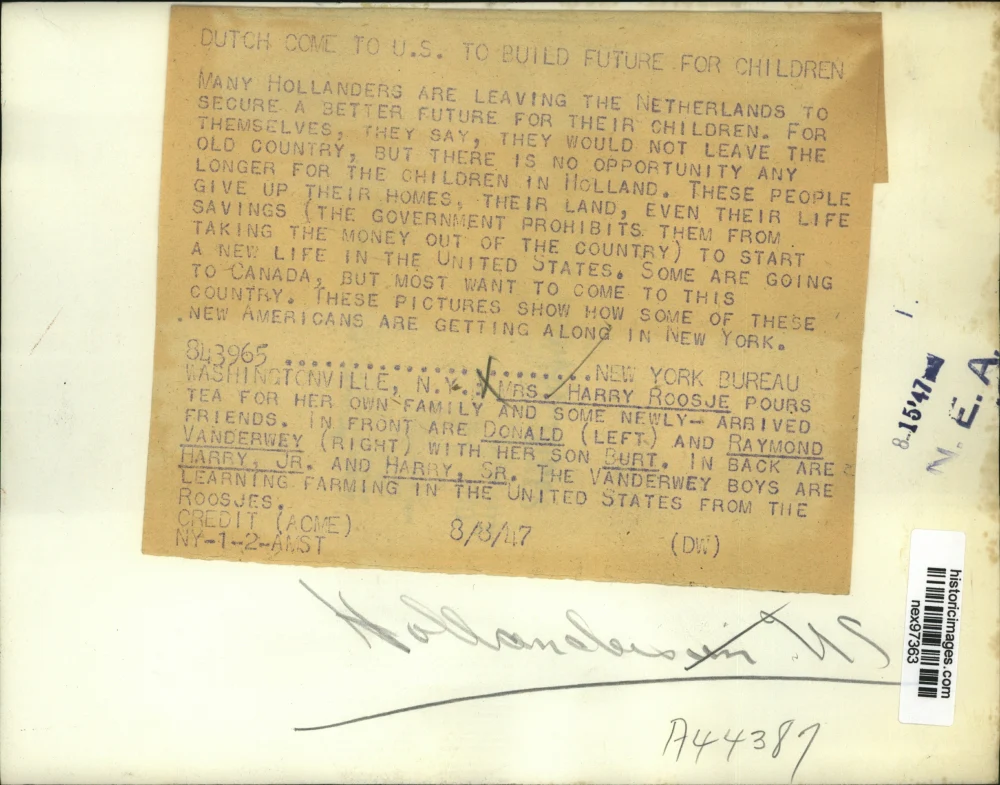 DUTCH COME TO U.S. TO BUILD FUTURE FOR CHILDREN
MANY HOLLANDERS ARE LEAVING THE NETHERLANDS TO
SECURE A BETTER FUTURE FOR THEIR CHILDREN. FOR
THEMSELVES, THEY SAY, THEY WOULD NOT LEAVE THE
OLD COUNTRY, BUT THERE IS NO OPPORTUNITY ANY
LONGER FOR THE CHILDREN IN HOLLAND. THESE PEOPLE
GIVE UP THEIR HOMES, THEIR LAND, EVEN THEIR LIFE
SAVINGS (THE GOVERNMENT PROHIBITS THEM FROM
TAKING THE MONEY OUT OF THE COUNTRY) TO START
A NEW LIFE IN THE UNITED STATES. SOME ARE GOING
TO CANADA, BUT MOST WANT TO COME TO THIS
COUNTRY. THESE PICTURES SHOW HOW SOME OF THESE
NEW AMERICANS ARE GETTING ALONG IN NEW YORK.
843965 ........................NEW YORK BUREAU
WASHINGTONVILLE, N.Y.: MRS. HARRY ROOSJE POURS
TEA FOR HER OWN FAMILY AND SOME NEWLY-ARRIVED
FRIENDS. IN FRONT ARE DONALD (LEFT) AND RAYMOND
VANDERWEY (RIGHT) WITH HER SON BURT. IN BACK ARE
HARRY, JR. AND HARRY, SR. THE VANDERWEY BOYS ARE
LEARNING FARMING IN THE UNITED STATES FROM THE
ROOSJES.
CREDIT (ACME) 8/8/47 (DW)
NY-1-2-AMST
Hollanders in US
A44387
8-15'47
N. E. A.
historicimages.com
nex97363